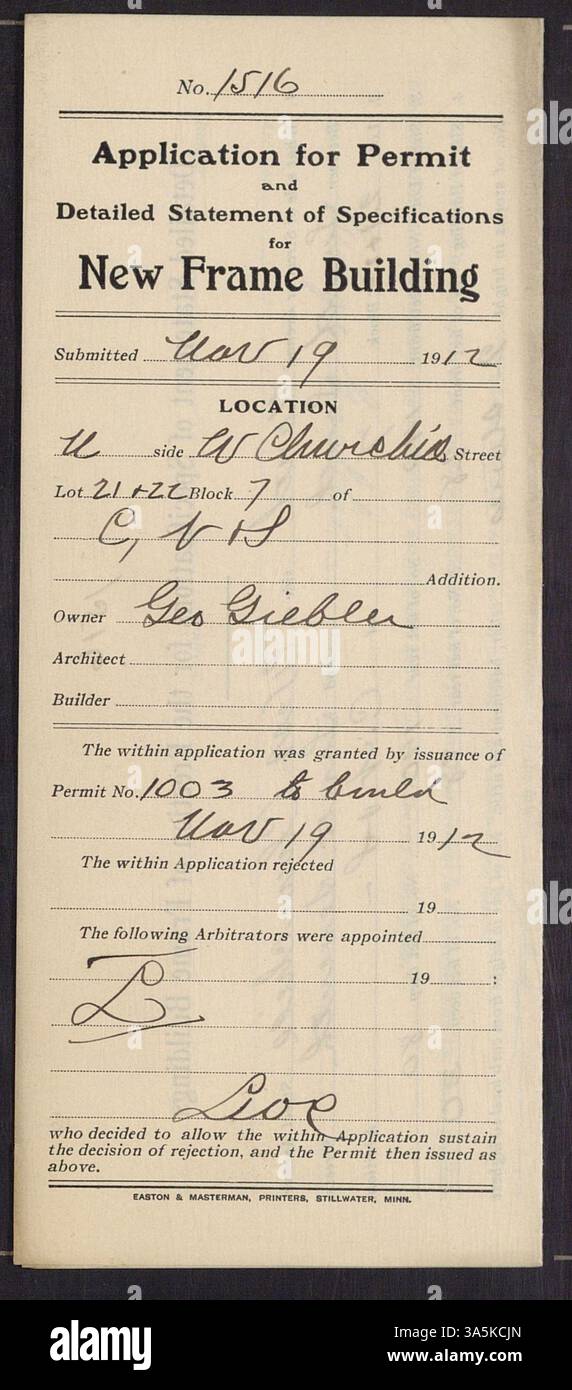 No. 1516
Application for Permit
and
Detailed Statement of Specifications
for
New Frame Building
Submitted Nov 19 1912
LOCATION
N side W Churchill Street
Lot 21 + 22 Block 7 of
C, V + S
Addition.
Owner Geo Giebler
Architect
Builder
The within application was granted by issuance of
Permit No. 1003 to build
Nov 19 1912
The within Application rejected
19
The following Arbitrators were appointed
19 :
L
who decided to allow the within Application sustain
the decision of rejection, and the Permit then issued as
above.
EASTON & MASTERMAN, PRINTERS, STILLWATER, MINN.
alamy
Image ID: 3A5KCJN
www.alamy.com